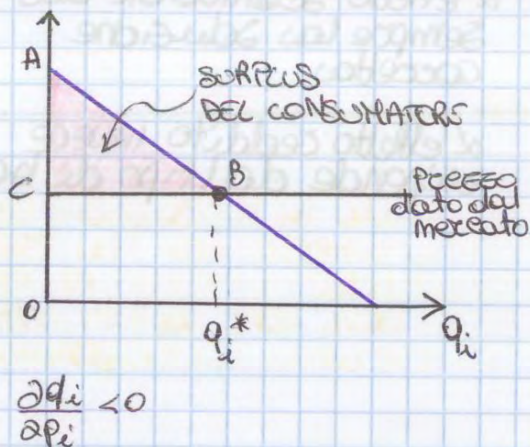 A
SURPLUS
DEL CONSUMATORE
C
B
PREZZO
dato dal
mercato
O
qi*
qi
∂qi/∂pi <0